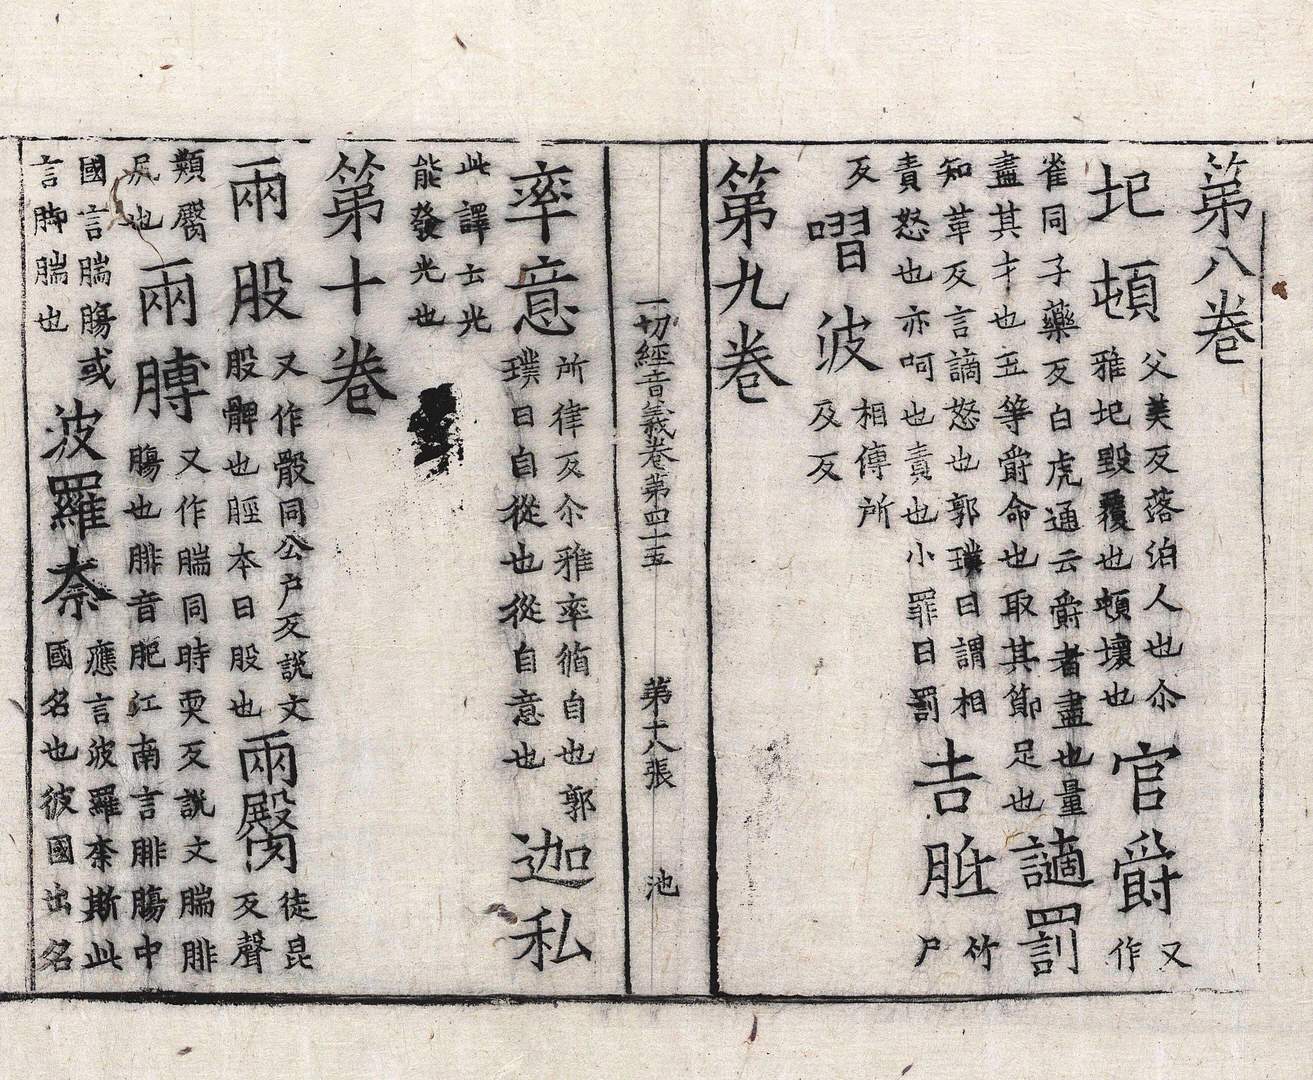 第八卷
圯頓父美反落泊人也尒雅圯毀覆也頓壞也官爵又作
雀同子藥反白虎通云爵者盡也量盡其才也五等爵命也取其節足也讁罰
知革反言讁怒也郭璞曰謂相責怒也亦呵也責也小罪曰罰吉竹尸
反㗩波相傳所及反
第九卷
一切經音義卷第四十五 第十八張 池
率意所律反尒雅率循自也郭璞曰自從也從自意也迦私
此譯云光能發光也
第十卷
兩股又作骰同公戶反說文股髀也脛本曰股也兩臋徒昆反聲
類臋尻也兩膊又作腨同時耎反說文腨腓膓也腓音肥江南言腓膓中
國言腨膓或言脚腨也波羅奈應言波羅奈斯此國名也彼國出名